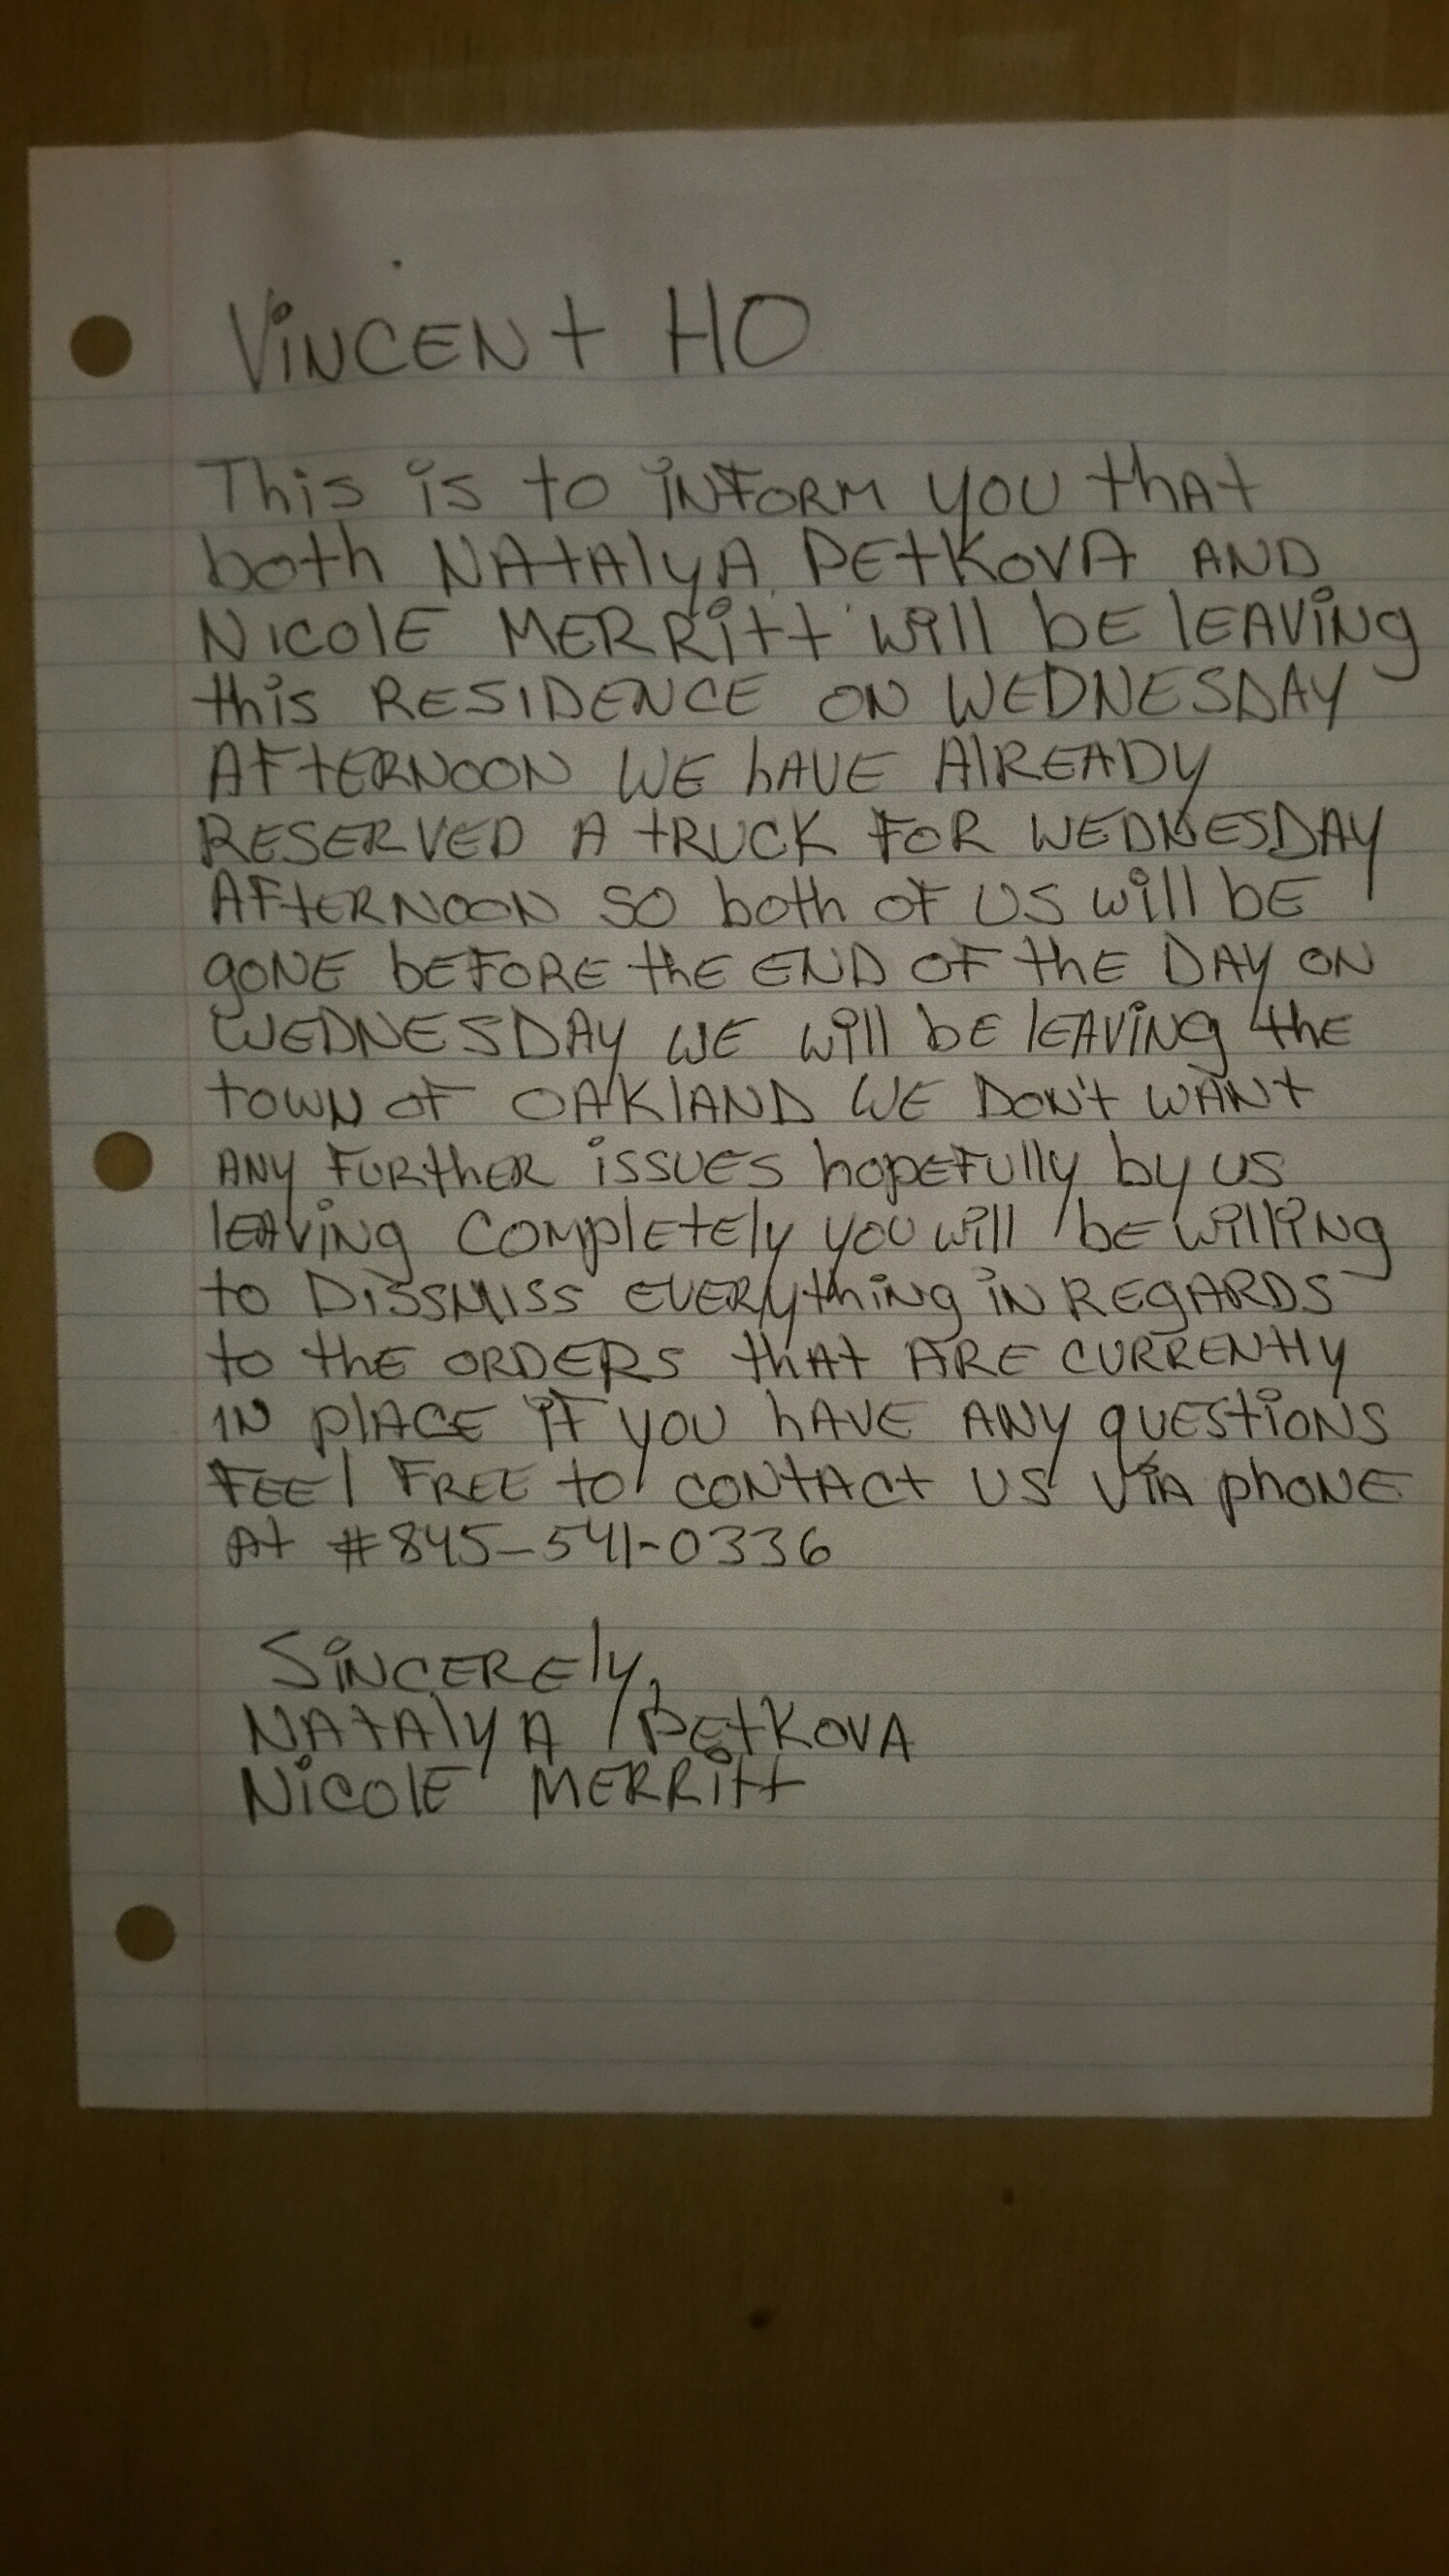 Vincent Ho
This is to inform you that
both Natalya Petkova and
Nicole Merritt will be leaving
this residence on Wednesday
afternoon we have already
reserved a truck for Wednesday
afternoon so both of us will be
gone before the end of the day on
Wednesday we will be leaving the
town of Oakland we don't want
any further issues hopefully by us
leaving completely you will be willing
to dissmiss everything in regards
to the orders that are currently
in place if you have any questions
feel free to contact us via phone
at #845-541-0336
Sincerely,
Natalya Petkova
Nicole Merritt